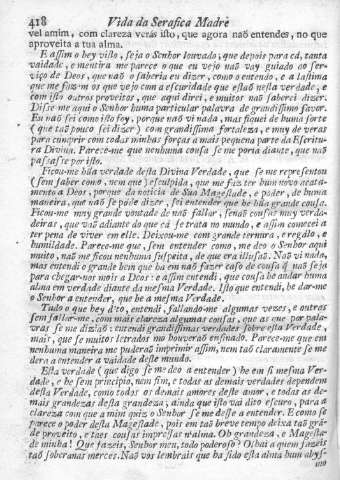 418 Vida da Serafica Madre
vel assim, com clareza verás isto, que agora naõ entendes, no que
aproveita a tua alma.
E assim o hey visto, seja o Senhor louvado, que depois para cá, tanta
vaidade, e mentira me parece o que eu vejo naõ vay guiado ao ser-
viço de Deos, que naõ o saberia eu dizer, como o entendo, e a lastima
que me fazem os que vejo com a escuridade que estaõ nesta verdade, e
com isto outros proveitos, que aqui direi, e muitos naõ saberei dizer.
Disse-me aqui o Senhor huma particular palavra de grandissimo favor.
Eu naõ sei como isto foy, porque naõ vi nada, mas fiquei de huma sorte
(que taõ pouco sei dizer) com grandissima fortaleza, e muy de veras
para cumprir com todas minhas forças a mais pequena parte da Escritu-
ra Divina. Parece-me que nenhuma cousa se me poria diante, que naõ
passasse por isto.
Ficou-me hũa verdade desta Divina Verdade, que se me representou
(sem saber como, nem que) esculpida, que me faz ter hum novo acata-
mento a Deos, porque dá noticia de Sua Magestade, e poder, de huma
maneira, que naõ se póde dizer, sei entender que he hũa grande cousa.
Ficou-me muy grande vontade de naõ fallar, senaõ cousas muy verda-
deiras, que vaõ adiante do que cá se trata no mundo, e assim comecei a
ter pena de viver em elle. Deixou-me com grande ternura, e regalo, e
humildade. Parece-me que, sem entender como, me deo o Senhor aqui
muito, naõ me ficou nenhuma suspeita, de que era illusaõ. Naõ vi nada,
mas entendi o grande bem que ha em naõ fazer caso de cousa q̃ naõ seja
para chegar-nos mais a Deos: e assim entendi, que cousa he andar huma
alma em verdade diante da mesma Verdade. Isto que entendi, he dar-me
o Senhor a entender, que he a mesma Verdade.
Tudo o que hey dito, entendi, fallando-me algumas vezes, e outras
sem fallar-me, com mais clareza algumas cousas, que as que por pala-
vras se me diziaõ: entendi grandissimas verdades sobre esta Verdade,
mais, que se muitos letrados mo houveraõ ensinado. Parece-me que em
nenhuma maneira me puderaõ imprimir assim, nem taõ claramente se me
dera a entender a vaidade deste mundo.
Esta verdade (que digo se me deo a entender) he em si mesma Ver-
dade, e he sem principio, nem fim, e todas as demais verdades dependem
desta Verdade, como todos os demais amores deste amor, e todas as de-
mais grandezas desta grandeza, ainda que isto vai dito escuro, para a
clareza com que a mim quiz o Senhor se me desse a entender. E como se
parece o poder desta Magestade, pois em taõ breve tempo deixa taõ gran-
de proveito, e taes cousas impressas n'alma. Oh grandeza, e Magesta-
de minha! Que fazeis, Senhor meu, todo poderoso? Olhai a quem fazeis
taõ soberanas merces. Naõ vos lembrais que ha sido esta alma hum abys-
mo